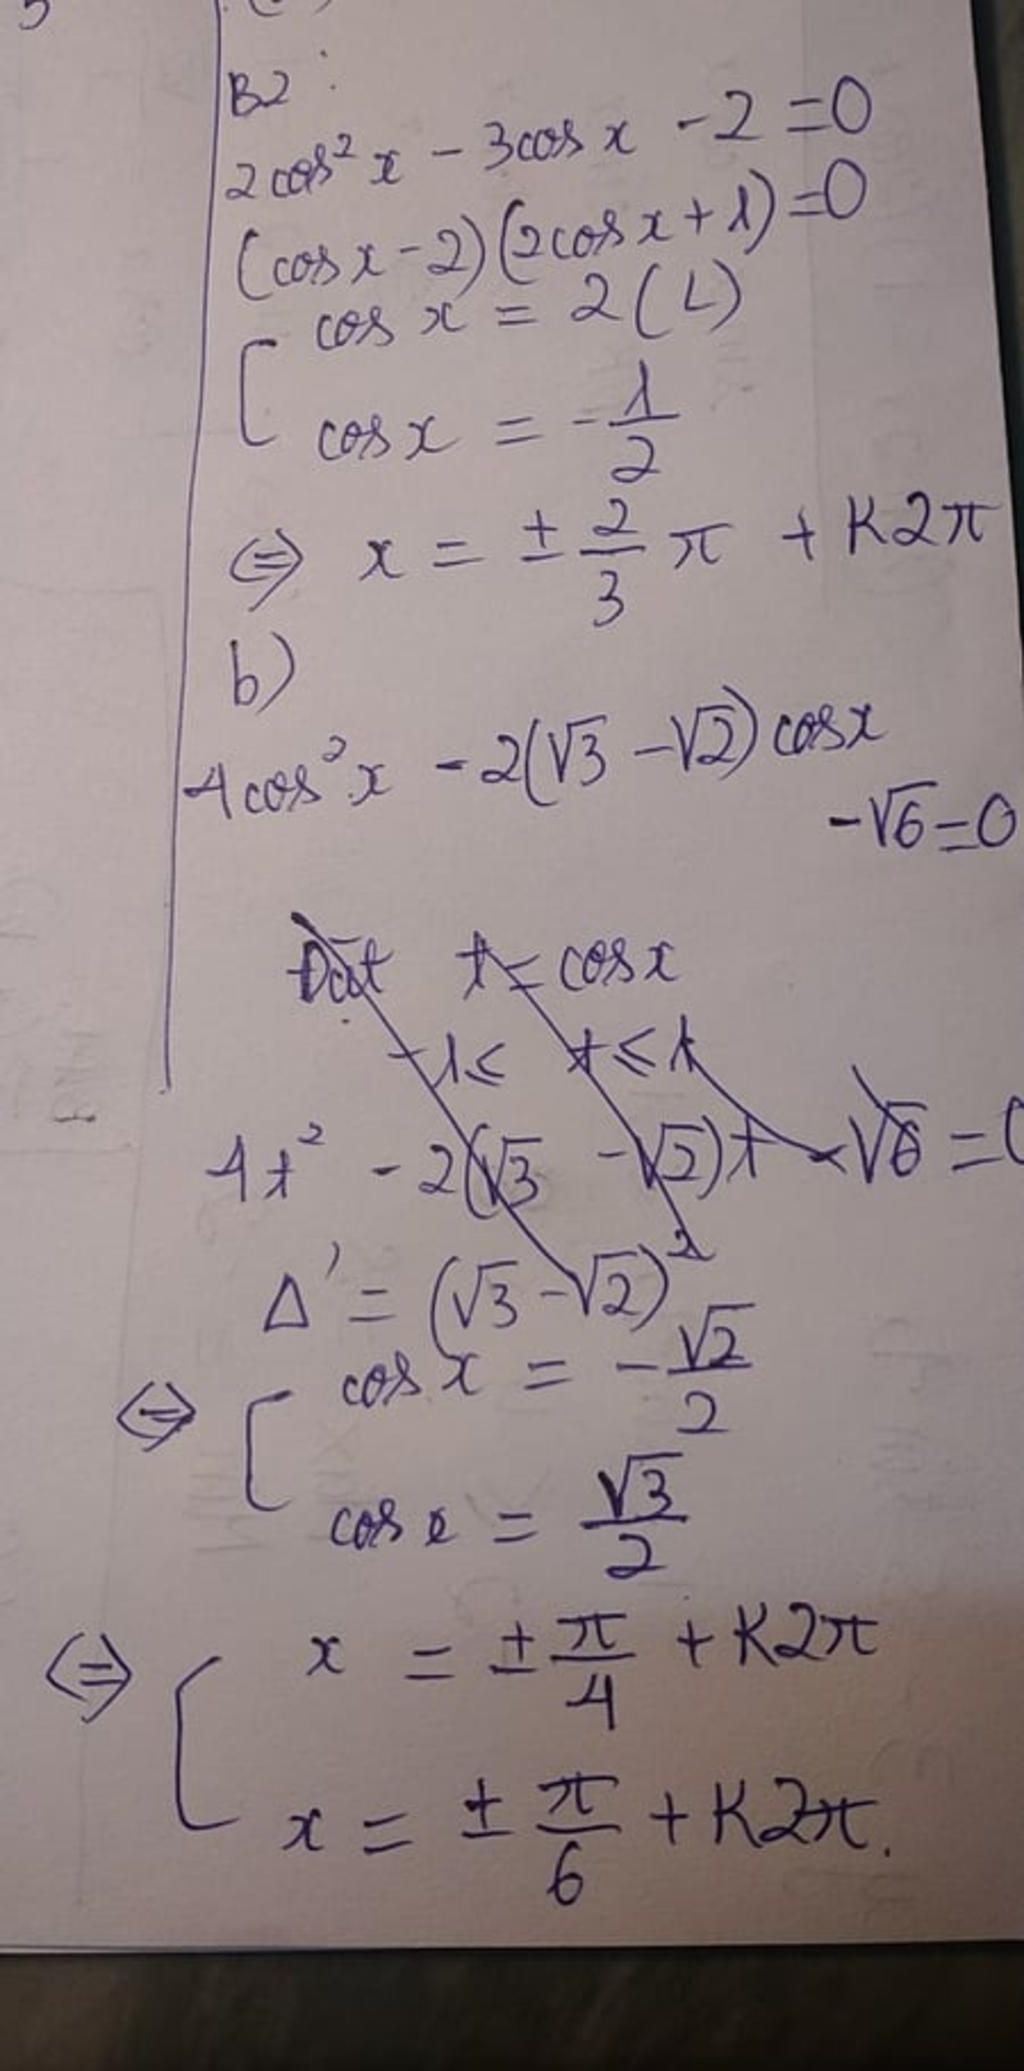 B2:
2cos² x - 3cos x - 2 = 0
(cos x - 2)(2cos x + 1) = 0
[ cos x = 2 (L)
cos x = - 1/2
⇔ x = ± 2/3 π + K2π
b)
4cos² x - 2(√3 - √2) cos x
- √6 = 0
Đặt t = cos x
-1 ≤ t ≤ 1
4t² - 2(√3 - √2)t - √6 = 0
Δ' = (√3 - √2)²
⇔ [ cos x = - √2/2
cos x = √3/2
⇔ [ x = ± π/4 + K2π
x = ± π/6 + K2π.